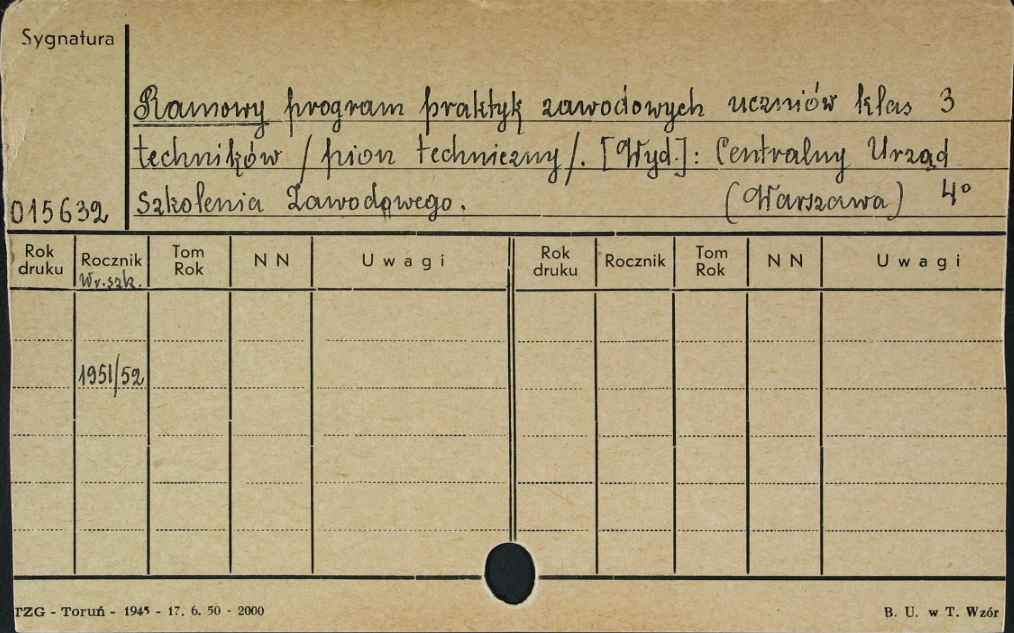 Sygnatura
Ramowy program praktyk zawodowych uczniów klas 3
techników /pion techniczny/. [Wyd.]: Centralny Urząd
015632 Szkolenia Zawodowego. (Warszawa) 4°
Rok druku Rocznik Tom Rok NN Uwagi Rok druku Rocznik Tom Rok NN Uwagi
Wr.szk.
1951/52
TZG - Toruń - 1945 - 17. 6. 50 - 2000 B. U. w T. Wzór